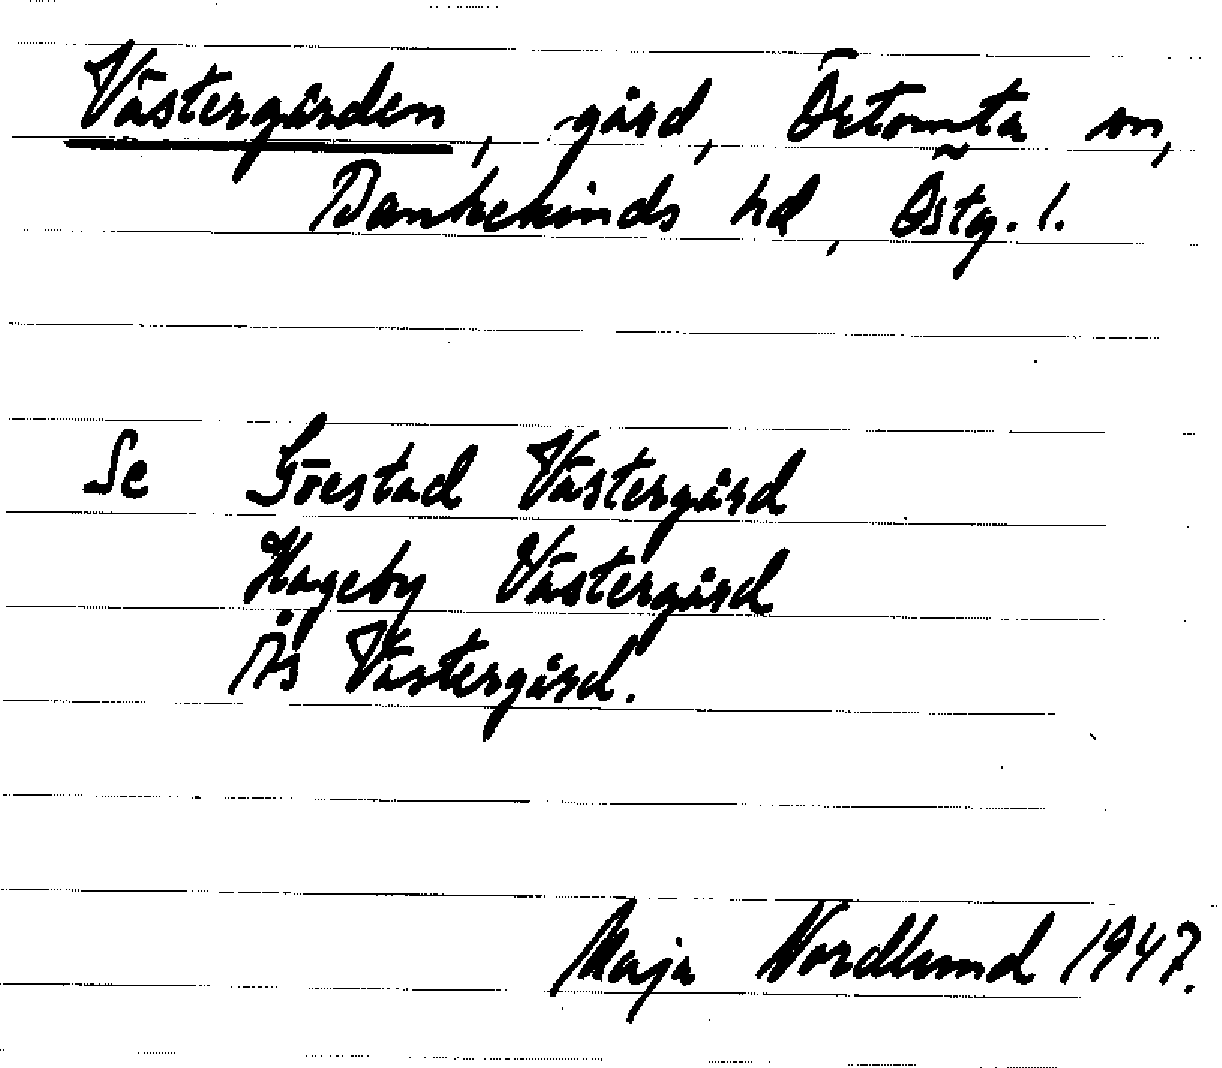 Västergården, gård, Örtomta sn,
Bankekinds hd, Östg. l.
Se Görstad Västergård
Hageby Västergård
Ås Västergård.
Maja Nordlund 1947.